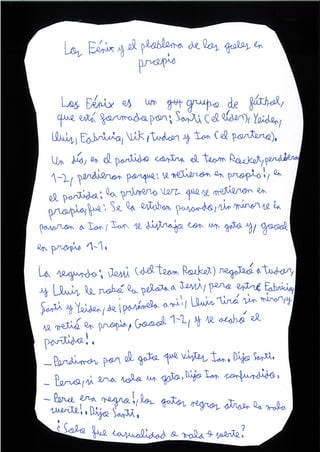 Los Fénix y el problema de los goles en
propio
Los Fénix es un gup grupo de fútbol,
que está formado por: Santi (el líder), Yeiden,
Lluis, Fabricio, Vik, Tudor y Ian (el portero).
Un día, en el partido contra el team Rocket, perdieron
1-2, perdieron porque: se metieron en propio!, en
el partido: la primera vez que se metieron en
propio, fue: Se la estaban pasando, sin mirar se la
pasaron a Ian, Ian se distrajo con un gato y, goool
en propio 1-1.
La segunda: Jessi (del team Rocket) regateó a Tudor,
y Lluis le robó la pelota a Jessi, pero entre Fabricio,
Santi y Yeiden, de ¡pásamela a mi!, Lluis tiró sin mirar, y
se metió en propio, Goool 1-2, y se acabó el
partido!.
- Perdimos por el gato que viste, Ian. Dijo Santi.
- Pero, si era solo un gato. Dijo Ian confundido.
- Pero era negro!, los gatos negros atraen la mala
suerte!. Dijo Santi.
¿Solo fue casualidad o mala suerte?